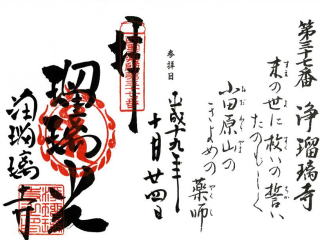 第三十七番 浄瑠璃寺
末の世に救いの誓い
たのもしく
小田原山の
きよめの
薬師
参拝日
平成十九年
十月廿四日
拝
瑠璃光
浄瑠璃寺